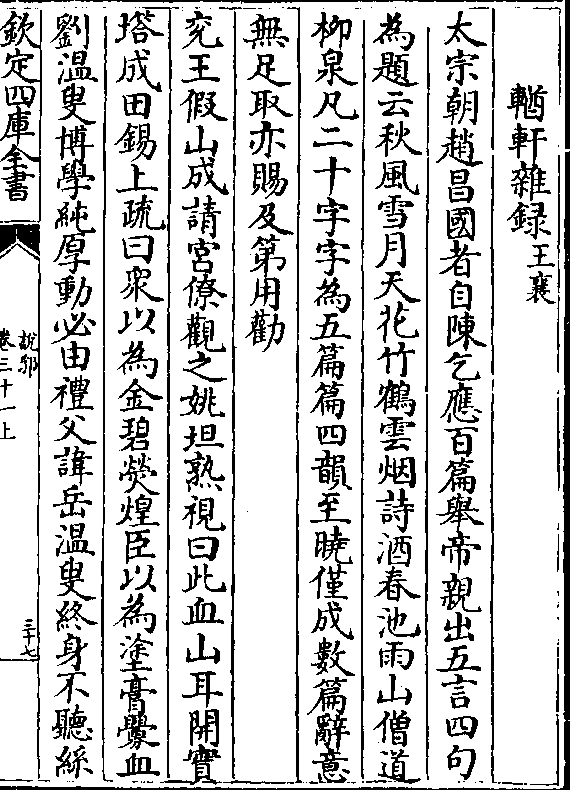 輶軒雜録王襄
太宗朝趙昌國者自陳乞應百篇舉帝親出五言四句
為題云秋風雪月天花竹鶴雲烟詩酒春池雨山僧道
柳泉凡二十字字為五篇篇四韻至曉僅成數篇辭意
無足取亦賜及第用勸
兖王假山成請宮僚觀之姚坦熟視曰此血山耳開寳
塔成田錫上疏曰衆以為金碧熒煌臣以為塗膏釁血
劉温叟博學純厚動必由禮父諱岳温叟終身不聽絲
欽定四庫全書
說郛
卷三十一上
三十七